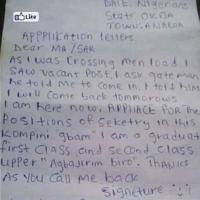 Like
DATE, Nigerians
State OKIJA
TOWN, ANABRA
APPPLIKATION letters
Dear MA/SAR
As I was Crossing men load I
SAW vacant Post, I ask gateman
he told me to come in. I told him
I will come back tommorows
I am here now. APPLIACE FOR the
Positions of Seketry in this
Kompini "gbam" I am a graduat
first Class and second Class
upper "Agbajirim biro". THANKS
As you call me back
Signature